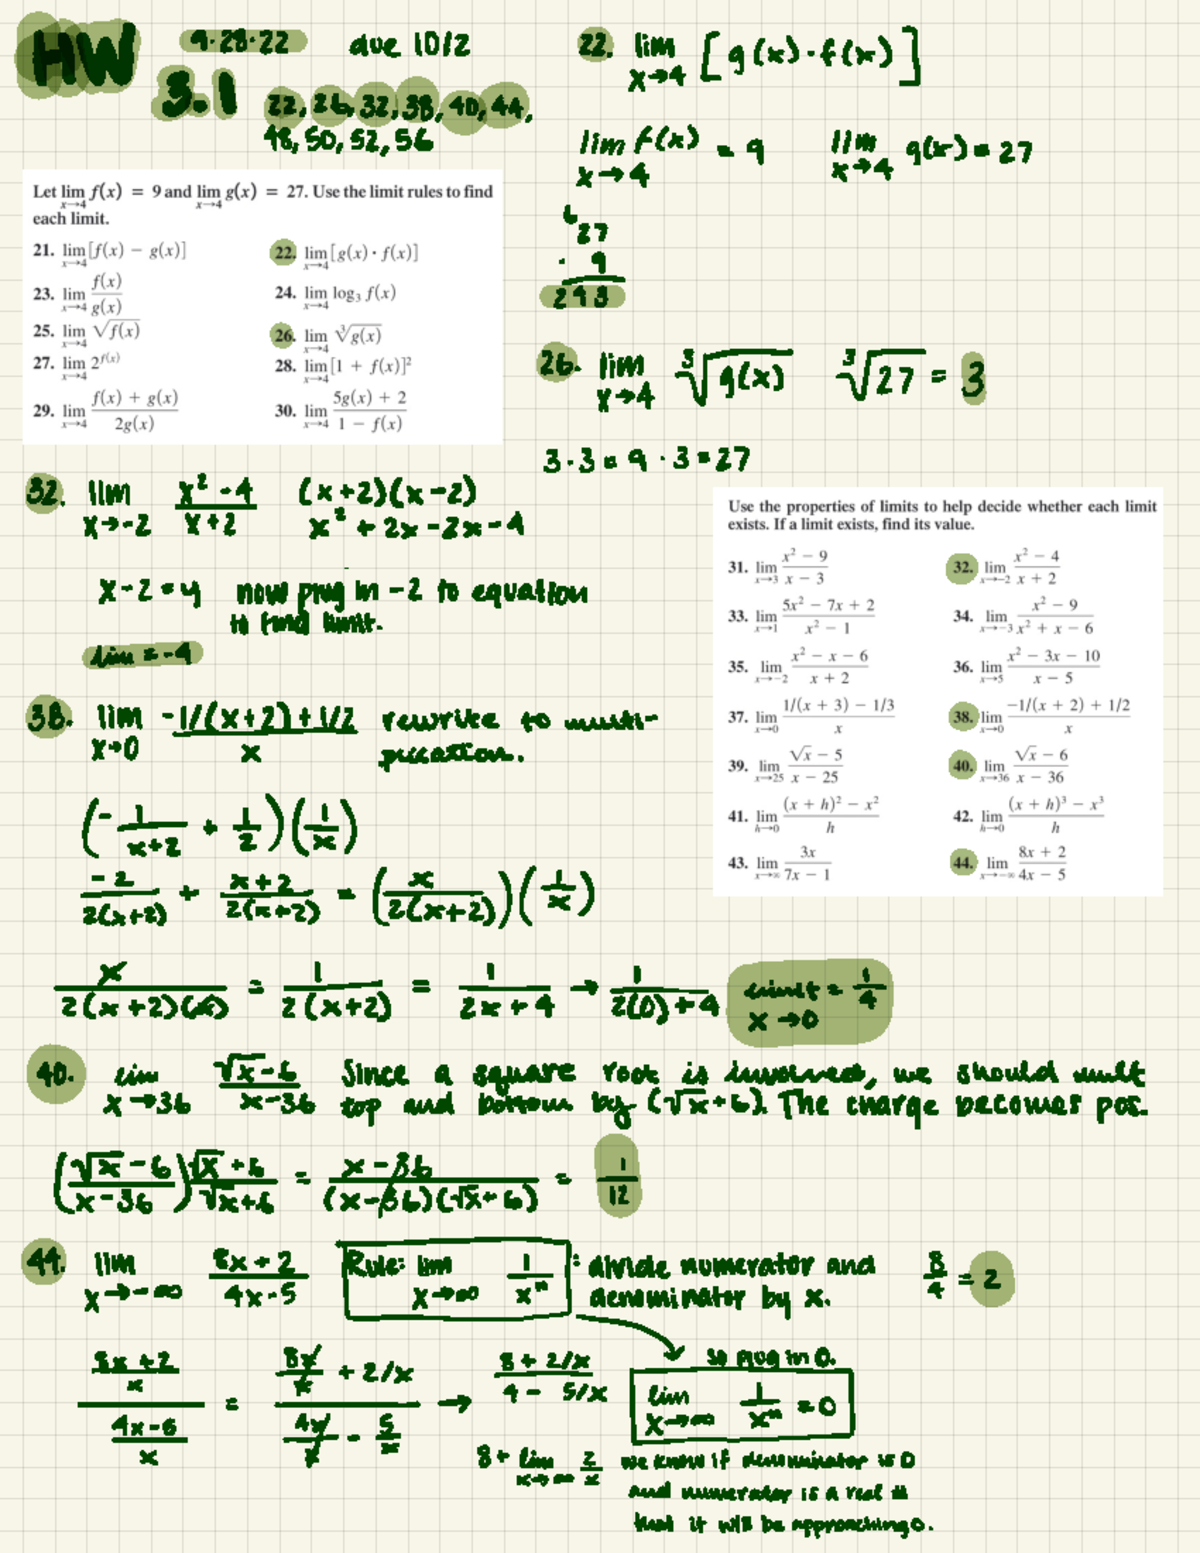 HW 9.28.22 due 10/2
3.1 22, 26, 32, 38, 40, 44,
48, 50, 52, 56
Let lim x→4 f(x) = 9 and lim x→4 g(x) = 27. Use the limit rules to find
each limit.
21. lim x→4 [f(x) − g(x)]
22. lim x→4 [g(x) · f(x)]
23. lim x→4 f(x)/g(x)
24. lim x→4 log₃ f(x)
25. lim x→4 √f(x)
26. lim x→4 ∛g(x)
27. lim x→4 2^f(x)
28. lim x→4 [1 + f(x)]²
29. lim x→4 (f(x) + g(x))/2g(x)
30. lim x→4 (5g(x) + 2)/(1 − f(x))
22. lim x→4 [g(x)·f(x)]
lim x→4 f(x) = 9 lim x→4 g(x) = 27
6
27
· 9
243
26. lim x→4 ∛g(x) ∛27 = 3
3·3 = 9 · 3 = 27
32. lim x→-2 (x²-4)/(x+2) (x+2)(x-2)
x² + 2x - 2x - 4
x-2=y now plug in -2 to equation
to find limit.
lim = -4
Use the properties of limits to help decide whether each limit
exists. If a limit exists, find its value.
31. lim x→3 (x² − 9)/(x − 3)
32. lim x→−2 (x² − 4)/(x + 2)
33. lim x→1 (5x² − 7x + 2)/(x² − 1)
34. lim x→−3 (x² − 9)/(x² + x − 6)
35. lim x→−2 (x² − x − 6)/(x + 2)
36. lim x→5 (x² − 3x − 10)/(x − 5)
37. lim x→0 (1/(x + 3) − 1/3)/x
38. lim x→0 (−1/(x + 2) + 1/2)/x
39. lim x→25 (√x − 5)/(x − 25)
40. lim x→36 (√x − 6)/(x − 36)
41. lim h→0 ((x + h)² − x²)/h
42. lim h→0 ((x + h)³ − x³)/h
43. lim x→∞ 3x/(7x − 1)
44. lim x→−∞ (8x + 2)/(4x − 5)
38. lim x→0 (-1/(x+2)+1/2)/x rewrite to multi-
plication.
(-1/(x+2) + 1/2)(1/x)
-2/2(x+2) + (x+2)/2(x+2) = (x/2(x+2))(1/x)
x/2(x+2)(x) = 1/2(x+2) = 1/(2x+4) → 1/(2(0)+4) limit x→0 = 1/4
40. lim x→36 (√x-6)/(x-36) Since a square root is involved, we should mult
top and bottom by (√x+6). The charge becomes pos.
((√x-6)/(x-36)) (√x+6)/(√x+6) = (x-36)/((x-36)(√x+6)) = 1/12
44. lim x→-∞ (8x+2)/(4x-5) Rule: lim x→∞ 1/xⁿ : divide numerator and
denominator by x. 8/4 = 2
so plug in 0.
((8x+2)/x)/((4x-5)/x) = (8x/x + 2/x)/(4x/x - 5/x) → (8+2/x)/(4-5/x) lim x→∞ 1/xⁿ = 0
8 + lim x→∞ 2/x we know if denominator is 0
and numerator is a real #
that it will be approaching 0.